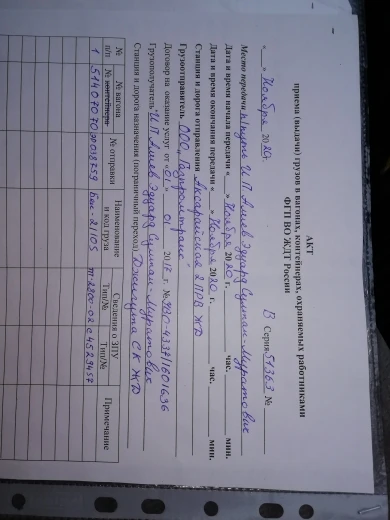 АКТ
приема (выдачи) грузов в вагонах, контейнерах, охраняемых работниками
ФГП ВО ЖДТ России
« » Ноября 2020г. В Серия 51363 №
Место передачи п/путь ИП Алиев Эдуард Султан-Муратович
Дата и время начала передачи « » Ноября 2020 г. час. мин.
Дата и время окончания передачи « » Ноября 2020 г. час. мин.
Станция и дорога отправления Аксарайская 2 ПРВ ЖД
Грузоотправитель ООО „Газпромтранс"
Договор на оказание услуг от «01» 01 2017 г. № 9/НО-4337/1601636
Грузополучатель ИП Алиев Эдуард Султан-Муратович
Станция и дорога назначения (пограничный переход) Джегута СК ЖД
№ п/п № вагона № контейнера № отправка Наименование и код груза Сведения о ЗПУ Тип/№ Тип/№ Примечание
1 51407070 ЭР038759 Бен - 21105 ТП-2800-02 С4529457